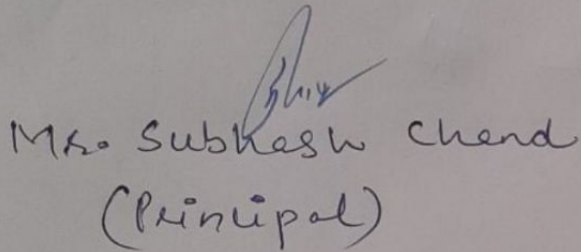 Mr. Subhash Chand
(Principal)